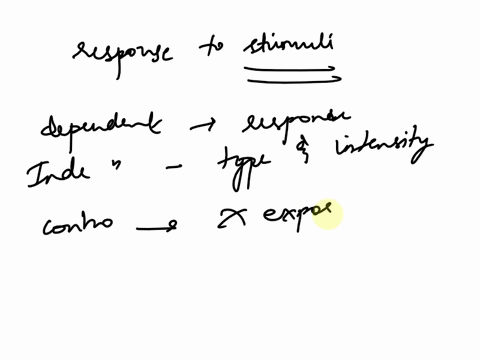 response to stimuli
dependent → response
Inde " - type & intensity
contro → X expos